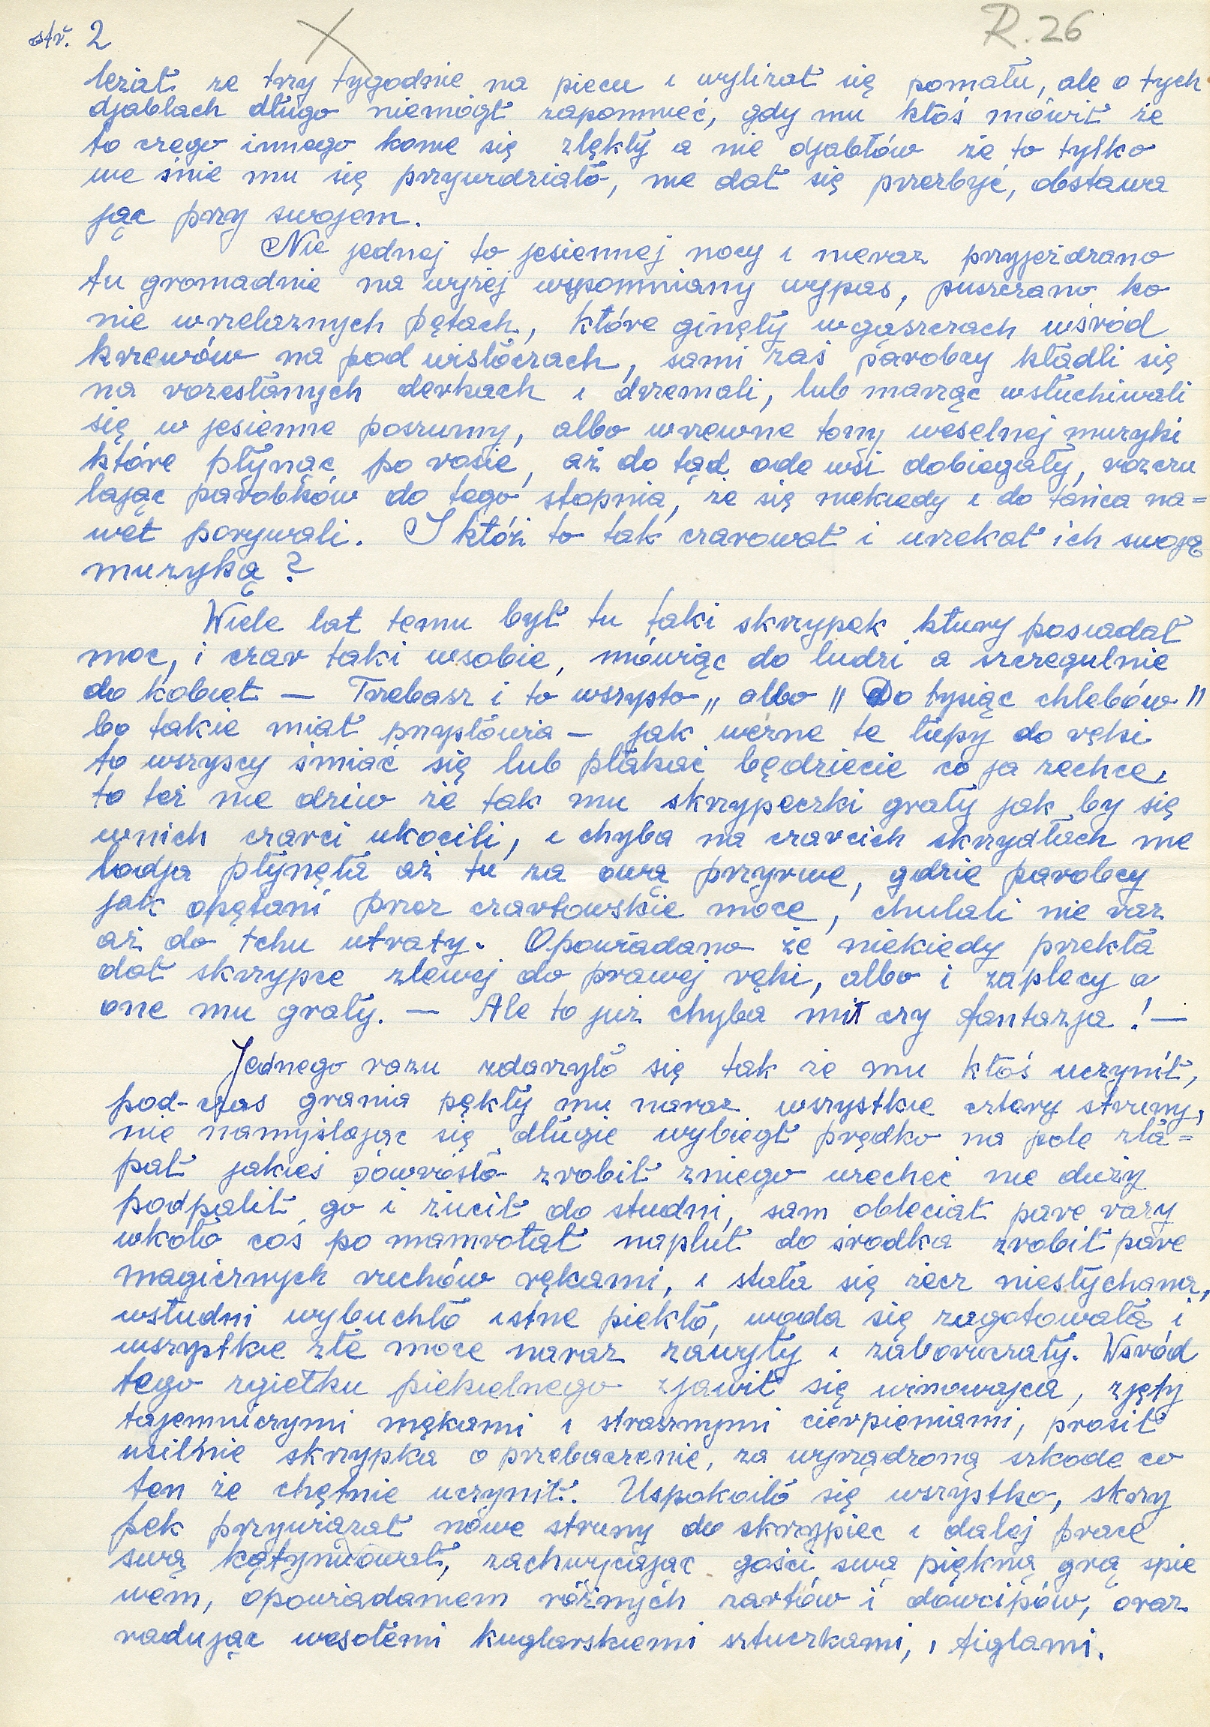 str. 2
R. 26
leżał ze trzy tygodnie na piecu i wylizał się pomału, ale o tych
djabłach długo niemógł zapomnieć, gdy mu ktoś mówił że
to czego innego konie się zlękły a nie djabłów że to tylko
we śnie mu się przywidziało, nie dał się przerbyć, obstawa
jąc przy swojem.
Nie jednej to jesiennej nocy i nieraz przyjeżdzano
tu gromadnie na wyżej wspomniany wypas, puszczano ko
nie w żelaznych pętach, które ginęły w gąszczach wśród
krzewów na pod wisłóczach, sami zaś parobcy kładli się
na rozesłanych derkach i drzemali, lub marząc wsłuchiwali
się w jesienne poszumy, albo w rzewne tony weselnej muzyki
które płynąc po rosie, aż do tąd ode wsi dobiegały, rozczu
lając parobków do tego stopnia, że się niekiedy i do tańca na=
wet porywali. I któż to tak czarował i urzekał ich swoją
muzyką ?
Wiele lat temu był tu taki skrzypek ktury posiadał
moc, i czar taki wsobie, mówiąc do ludzi a szczegulnie
do kobiet — Trzebasz i to wszypto „ albo " Do tysiąc chlebów "
bo takie miał przysłówia — jak wezne te lupy do ręki
to wszyscy śmiać się lub płakać będziecie co ja zechce,
to też nie dziw że tak mu skrzypeczki grały jak by się
wnich czarci ukocili, i chyba na czarcich skrzydłach me
lodja płynęła aż tu za ową przyrwe, gdzie parobcy
jak opętani przez czartowskie moce, chulali nie raz
aż do tchu utraty. Opowiadano że niekiedy przekła
dał skrzypce zlewej do prawej ręki, albo i zaplecy a
one mu grały. — Ale to już chyba mit czy fantazja ! —
Jednego razu zdarzyło się tak że mu ktoś uczynił,
pod-czas grania pękły mu naraz wszystkie cztery struny,
nie namyślając się długie wybiegł prędko na pole zła=
pał jakieś powrósło zrobił zniego wiecheć nie duży
podpalił go i żucił do studni, sam obleciał pare razy
wkoło coś po mamrotał napluł do środka zrobił pare
magicznych ruchów rękami, i stała się żecz niesłychana,
wstudni wybuchło istne piekło, woda się zagotowała i
wszystkie złe moce naraz zawyły i zaborucząły. Wśród
tego zgiełku piekielnego zjawił się winowajca, zjęty
tajemniczymi mękami i strasznymi cierpieniami, prosił
usilnie skrzypka o przebaczenie, za wyrządzoną szkode co
ten że chętnie uczynił. Uspokoiło się wszystko, skrzy
pek przywiązał nowe struny do skrzypiec i dalej prace
swą kątynuował, zachwycając gości swą piękną grą śpie
wem, opowiadaniem różnych żartów i dowcipów, oraz
radując wesołemi kuglarskiemi sztuczkami, i figlami.